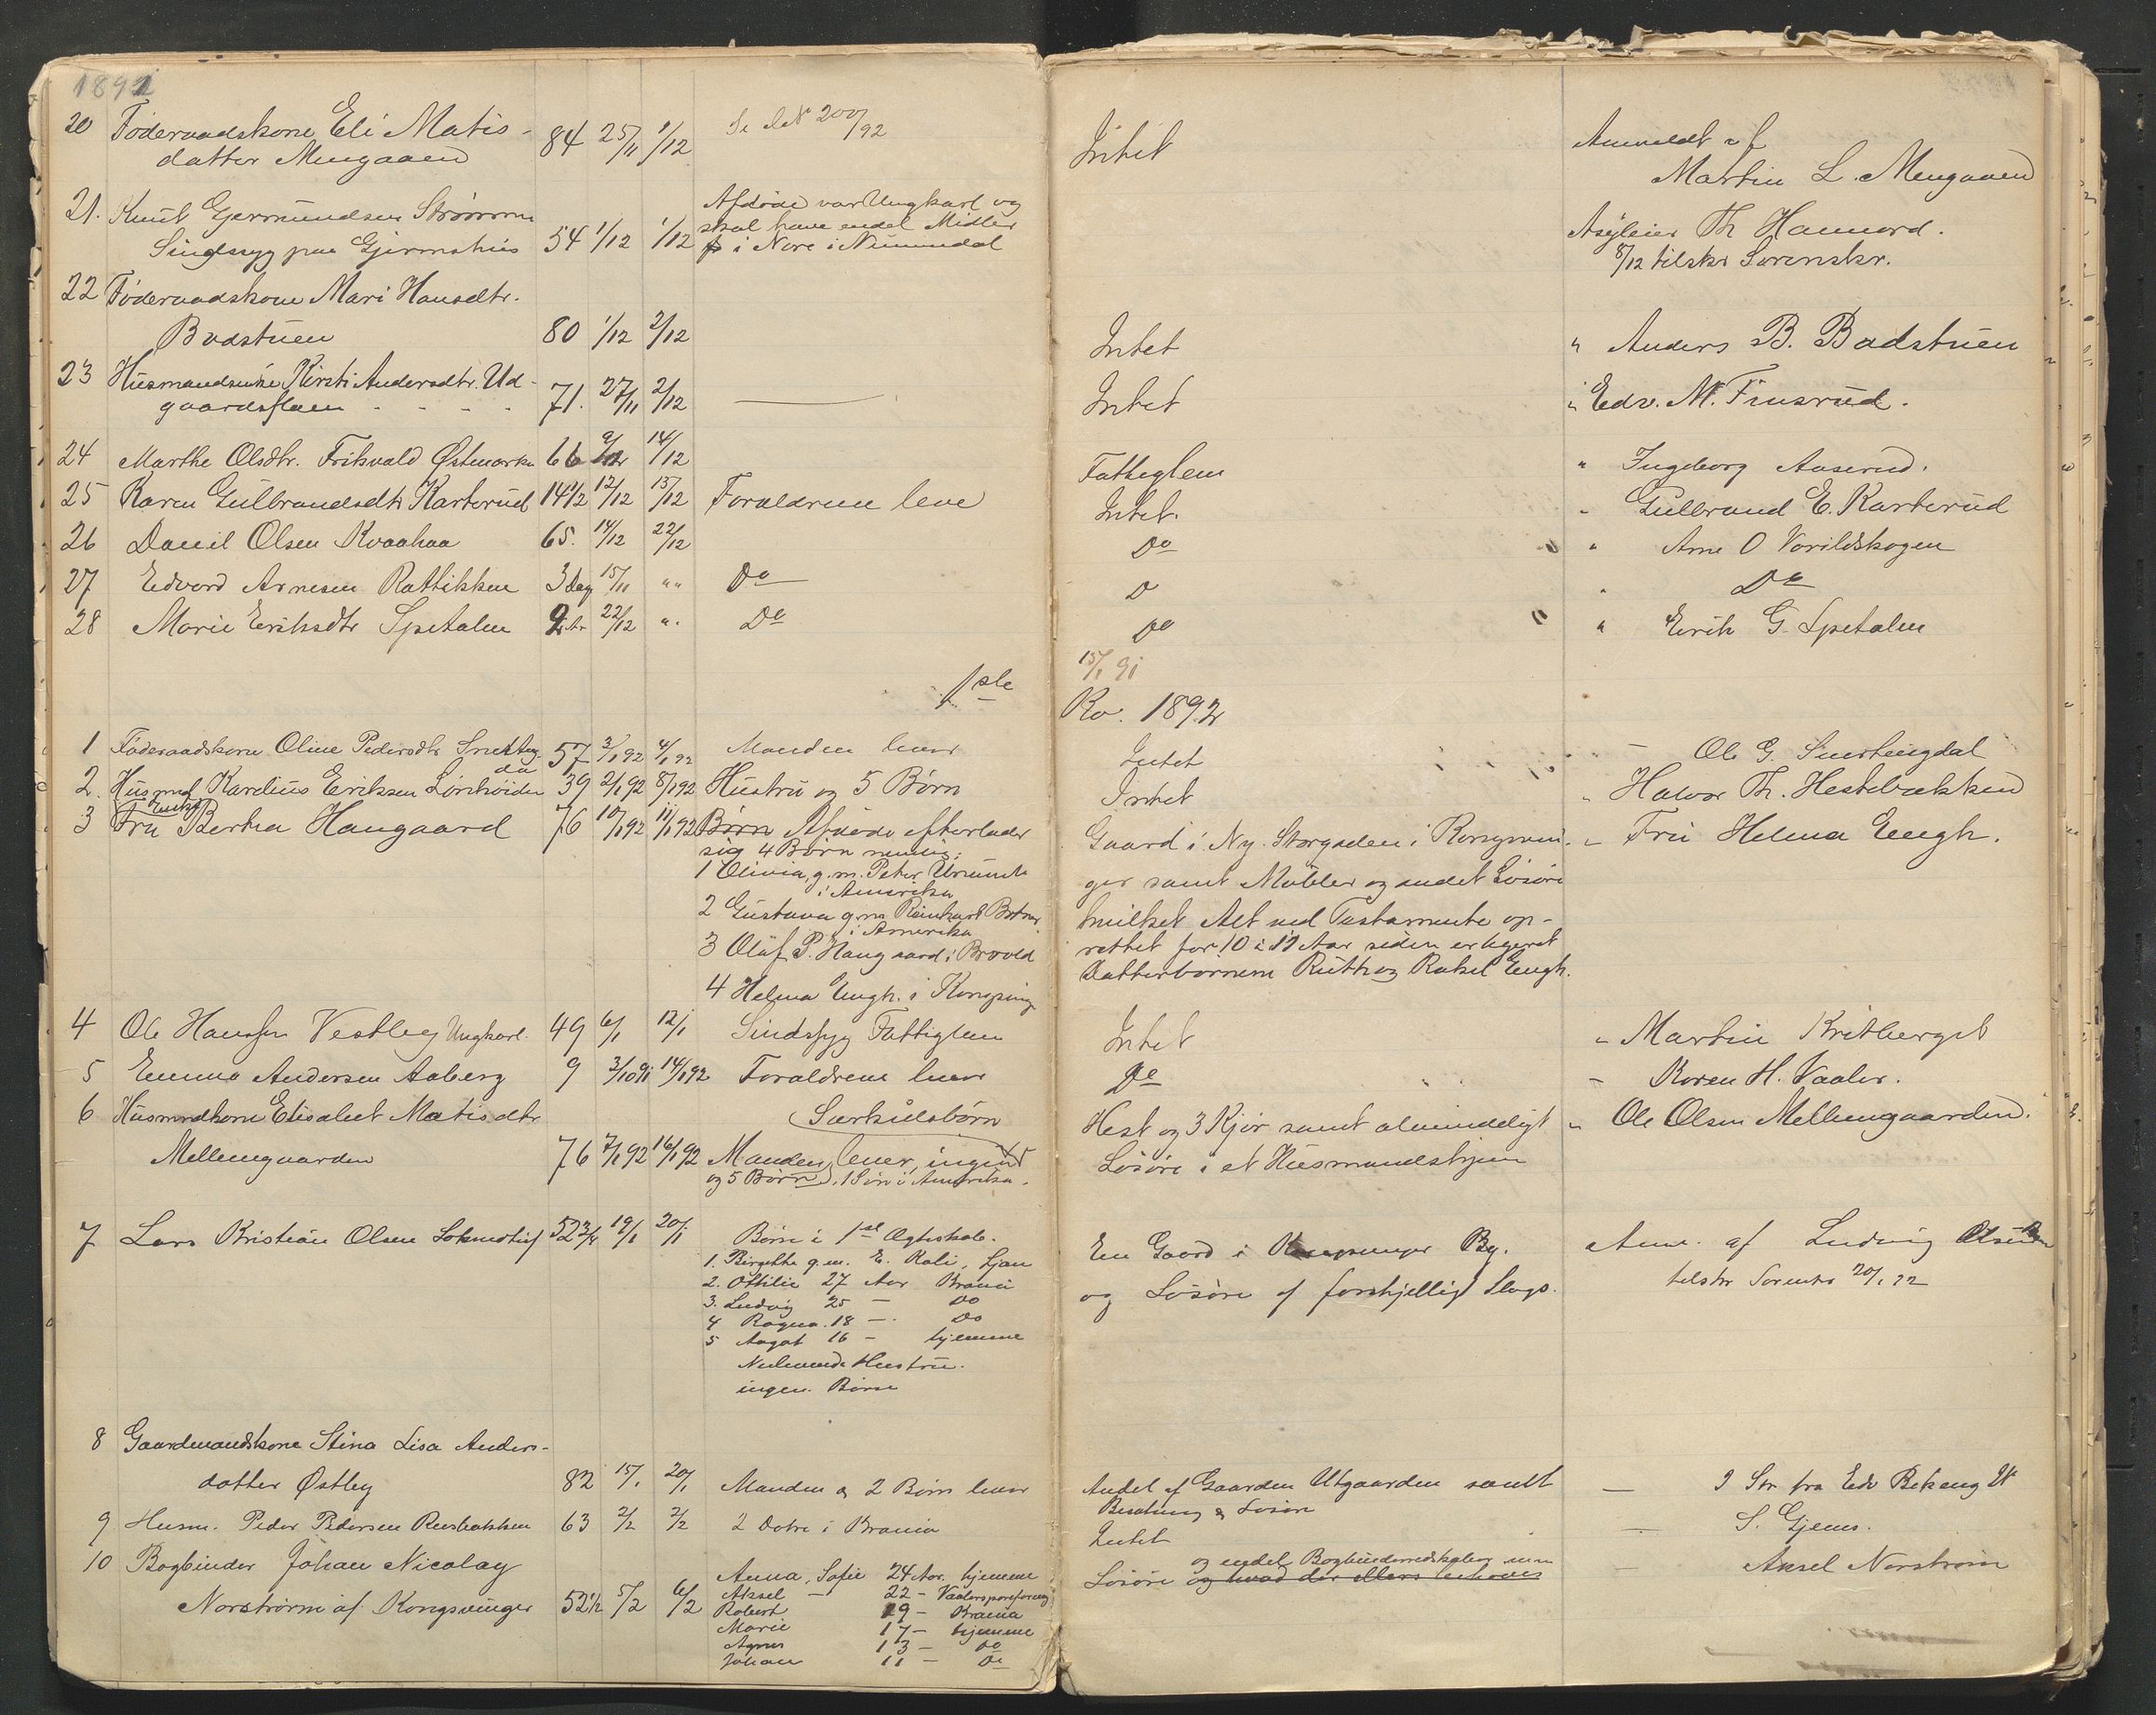 1891
20 Føderaadskone Eli Matis- 84 25/11 1/12 Se No 200/92 Intet Anmeldt af
datter Mengaaen Martin L. Mengaaen
21. Knut Gjermundsen Strømmen Afdøde var Ungkarl og
skal have endel Midler Asyleier Th Hannord.
Sindssyg paa Gjermshus 54 1/12 1/12 i Nore i Nummedal 8/12 tilskr Sorenskr.
22 Føderaadskone Mari Hansdtr.
Badstuen 80 1/12 2/12 Intet " Anders B. Badstuen
23 Husmandsenke Kirsti Andersdtr. Ud-
gaardsflaen 71. 27/11 2/12 Intet " Edv. M. Finsrud.
24 Marthe Olsdtr. Frikvald Østmarken 66 9/12 14/12 Fattiglem " Ingeborg Aaserud.
25 Karen Gulbrandsdtr Karterud 14 1/2 12/12 15/12 Forældrene leve Intet. " Gulbrand E. Karterud
26 Danil Olsen Kvaahaa 65. 14/12 22/12 Do " Arne O Vorildskogen
27 Edvard Arnesen Rattikken 3 Dag 15/11 " " Do D " Do
28 Marie Eriksdtr Spetalen 2 Ar 22/12 " " Do Do " Erik G. Spetalen
15/1 91
1ste Kv. 1892
1 Føderaadskone Oline Pedersdtr Snerting- 57 3/1 92 4/1 92 Manden lever Intet — Ole G. Snertingdal
dal
2. Husmd Karelius Eriksen Lørshøiden 39 2/1 92 8/1 92 Hustru og 5 Børn Intet " Halvor Th. Hestebækken
Enke
3 Fru Berthea Haugaard 76 10/1 92 11/1 92 Børn Afdøde efterlader Gaard i Ny. Storgaden i Kongsvin- " Fru Helma Engh.
sig 4 Børn nemlig:
1 Olivia, g.m. Peter ger samt Møbler og andet Løsøre
i Amerika
2 Gustava g.m. Reinhart hvilket Alt ved Testamente op-
i Amerika
3 Olaf P. Haugaard i rettet for 10 à 11 Aar siden er legeret
Datterbørnene Ruth og Rakel Engh.
4 Helma Engh. i Kongsving
4 Ole Hansen Vestby Ungkarl. 49 6/1 12/1 Sindssyg Fattiglem Intet " Martin Kritberget
5 Emma Andersen Aaberg 9 3/10 91 14/1 92 Forældrene lever Do — Karen H. Vaaler.
6 Husmndkone Elisabet Matisdtr Særkulsbørn Hest og 3 Kjør samt almindeligt " Ole Olsen Mellemgaarden.
Mellemgaarden 76 7/1 92 16/1 92 Manden lever, ingen Løsøre i et Husmandshjem
og 5 Børn, 1 Søn i Amerika.
7 Lars Kristian Olsen Lokmotivf 52 3/4 19/1 20/1 Børn i 1ste Ægteskab. En Gaard i Kongsvinger By. Anm. af Ludvig Olsen
1. Birgithe g.m. E. Rali, Ljan tilskr Sorenskr 20/1 92
2. Ottilie 27 Aar Krania og Løsøre af forskjellig Slags.
3. Ludvig 25 — Do
4 Ragna. 18 — Do
5 Aagot 16 — hjemme
Nulevende Hustru.
ingen Børn
8 Gaardmandskone Stina Lisa Anders-
datter Østby 82 15/1 20/1 Manden og 2 Børn lever Andel af Gaarden Utgaarden samt —
Besætning & Løsøre
9 Husm. Peder Pedersen Rusbakken 63 2/2 2/2 2 Døtre i Krania Intet — S. Gjems.
10 Bogbinder Johan Nicolay Anna, Sofie 24 Aar. hjemme og endel Bogbinderredskaber — Aksel Norstrøm
Aksel — 22 — Løsøre og hvad der ellers behøves
Norstrøm af Kongsvinger 52 1/2 5/2 6/2 Robert 19 — Krania
Marie 17 — hjemme
Agnes 13 — Do
Johan 11 — Do